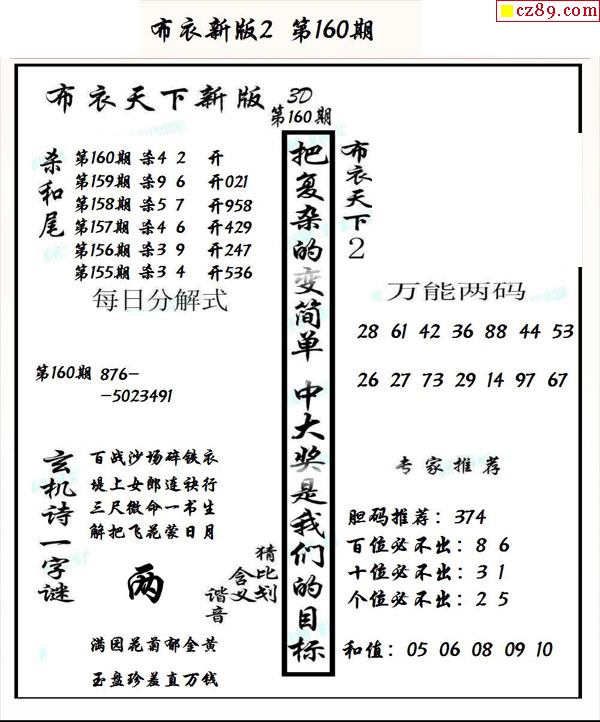 cz89.com
布衣新版2 第160期
布衣天下新版
3D
第160期
杀和尾
第160期 杀4 2 开
第159期 杀9 6 开021
第158期 杀5 7 开958
第157期 杀4 6 开429
第156期 杀3 9 开247
第155期 杀3 4 开536
每日分解式
第160期 876-
-5023491
玄机诗一字谜
百战沙场碎铁衣
堤上女郎连诀行
三尺微命一书生
解把飞花蒙日月
两
猜比划
含义
谐音
满园花菊郁金黄
玉盘珍羞直万钱
把复杂的变简单 中大奖是我们的目标
布衣天下2
万能两码
28 61 42 36 88 44 53
26 27 73 29 14 97 67
专家推荐
胆码推荐：374
百位必不出：8 6
十位必不出：3 1
个位必不出：2 5
和值：05 06 08 09 10